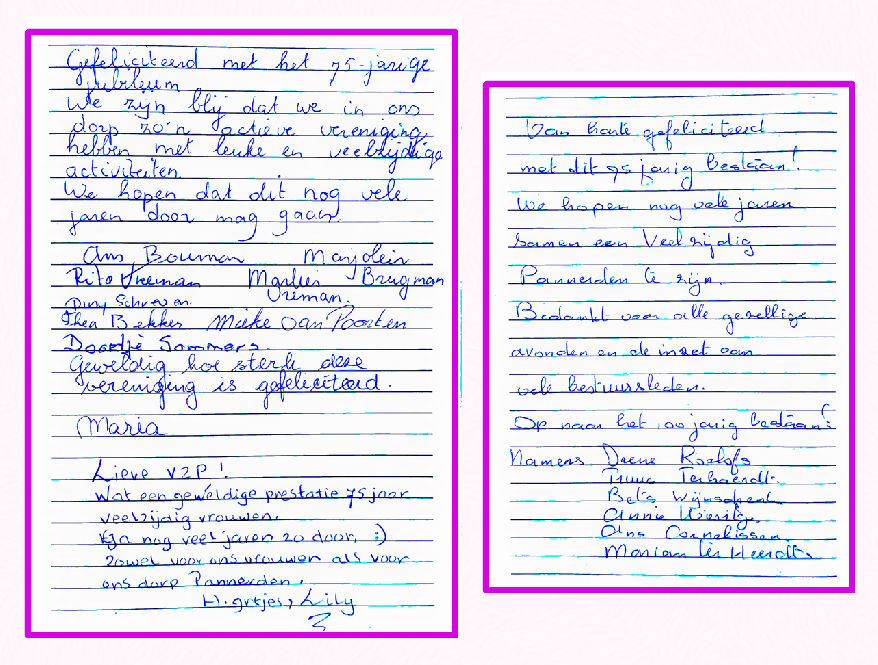 Gefeliciteerd met het 75-jarige
jubileum
We zijn blij dat we in ons
dorp zo'n actieve vereniging
hebben met leuke en veelzijdige
activiteiten.
We hopen dat dit nog vele
jaren door mag gaan.
Ans Bouman Marjolein
Rita Vreeman Marlies Brugman
Diny Schreven Vreman.
Thea Bekker Mieke van Pooten
Doortje Sommers.
Geweldig hoe sterk deze
vereniging is gefeliciteerd.
Maria
Lieve VZP!
Wat een geweldige prestatie 75 jaar
veelzijdig vrouwen.
Ga nog veel jaren zo door, :)
zowel voor ons vrouwen als voor
ons dorp Pannerden.
H. grtjes, Lily
Van harte gefeliciteerd
met dit 75 jarig bestaan!
We hopen nog vele jaren
samen een Veelzijdig
Pannerden te zijn.
Bedankt voor alle gezellige
avonden en de inzet van
vele bestuursleden.
Op naar het 100 jarig bestaan!
Namens Diene Roelofs
Truus Terhaerdt.
Bets
Annie
Ans Cornelissen
Mariam ter Heerdt.